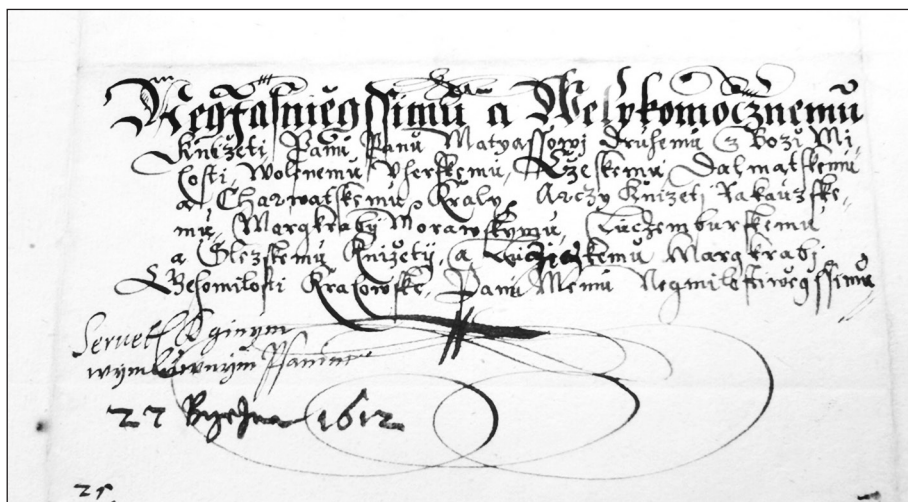 Negyasniegssimu a Welykomocznemu
Knižeti Panu Panu Matyassowj druhemu Z Bozi Mi-
losti Wolenemu Vherskemu, Czeskemu Dalmatskemu
a Charwatskemu Kraly, Arczy Knizeti Rakauzske-
mu, Margkrabj Morawskymu, Luczemburskemu
a Slezskemu Knižetÿ, a Margkrabj
Gehomilosti Kralowske, Panu Memu Negmilostiwiegssimu
ginym
Psanim
27 1612
25